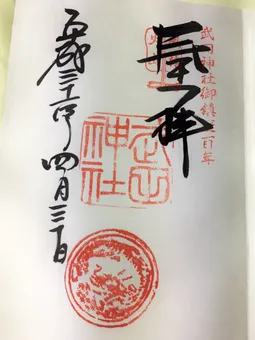 武田神社御鎮座百年
奉拝
武田神社
平成三十年四月三日